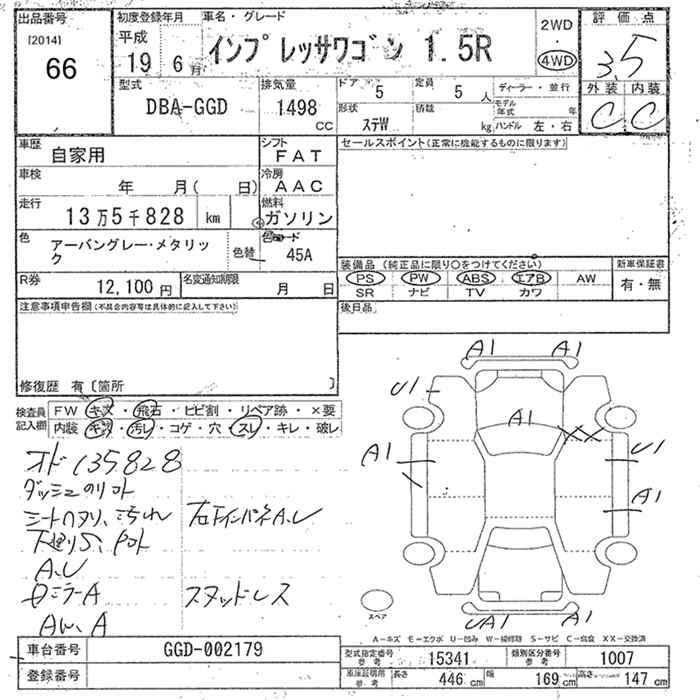 出品番号 初度登録年月 車名・グレード 2WD 評価点
[2014] 平成 インプレッサワゴン 1.5R ・ 3.5
66 19 6月 4WD
外装 内装
型式 排気量 ドア 5 定員 5人 ディーラー・並行 C C
DBA-GGD 1498 cc 形状 ステW 積載 kg モデル年式 年
ハンドル 左・右
車歴 自家用 シフト FAT セールスポイント(正常に機能するものに限ります)
車検 年 月( 日) 冷房 AAC
走行 13万5千828 km 燃料 ガソリン
色 アーバングレー・メタリック 色替 45A
装備品(純正品に限り○をつけてください) 新車保証書
R券 12,100円 名変通知期限 月 日 PS PW ABS エアB AW 有・無
SR ナビ TV カワ
注意事項申告欄(不具合内容等は具体的に記入して下さい) 後日品
修復歴 有〔箇所 〕
検査員 FW キズ・飛石・ヒビ割・リペア跡・×要
記入欄 内装 キズ・汚レ・コゲ・穴・スレ・キレ・破レ
A1 A1
U1
A1
XX
A1 U1
A1
オド135828
シートヘタリ、汚れ 右下インパネA.U
A.U
ミラーA スタッドレス
スペア
UA1 A1
A-キズ E-エクボ U-凹み W-補修跡 S-サビ C-腐食 XX-交換済
車台番号 GGD-002179 型式指定番号 参考 15341 類別区分番号 参考 1007
登録番号 車庫証明用 参考 長さ 446 cm 幅 169 cm 高さ 147 cm